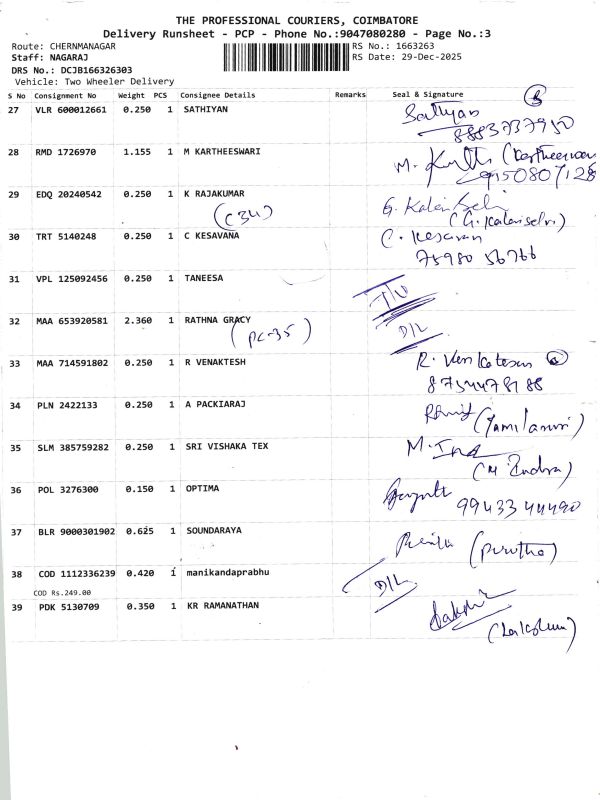 THE PROFESSIONAL COURIERS, COIMBATORE
Delivery Runsheet - PCP - Phone No.:9047080280 - Page No.:3
Route: CHERNMANAGAR
RS No.: 1663263
Staff: NAGARAJ
RS Date: 29-Dec-2025
DRS No.: DCJB166326303
Vehicle: Two Wheeler Delivery
S No Consignment No Weight PCS Consignee Details Remarks Seal & Signature
27 VLR 600012661 0.250 1 SATHIYAN Sathiyan
8883737950
28 RMD 1726970 1.155 1 M KARTHEESWARI M. (Kartheeswari
9150807128
29 EDQ 20240542 0.250 1 K RAJAKUMAR G. Kalaiselvi
(C34) (G. Kalaiselvi)
30 TRT 5140248 0.250 1 C KESAVANA C. Kesavan
75980 56766
31 VPL 125092456 0.250 1 TANEESA
32 MAA 653920581 2.360 1 RATHNA GRACY D/L
(PC-35)
33 MAA 714591802 0.250 1 R VENAKTESH R. Venkatesan
8754478188
34 PLN 2422133 0.250 1 A PACKIARAJ
35 SLM 385759282 0.250 1 SRI VISHAKA TEX M. Ind
(M Indra)
36 POL 3276300 0.150 1 OPTIMA
99433 44490
37 BLR 9000301902 0.625 1 SOUNDARAYA
38 COD 1112336239 0.420 1 manikandaprabhu D/L
COD Rs.249.00
39 PDK 5130709 0.350 1 KR RAMANATHAN